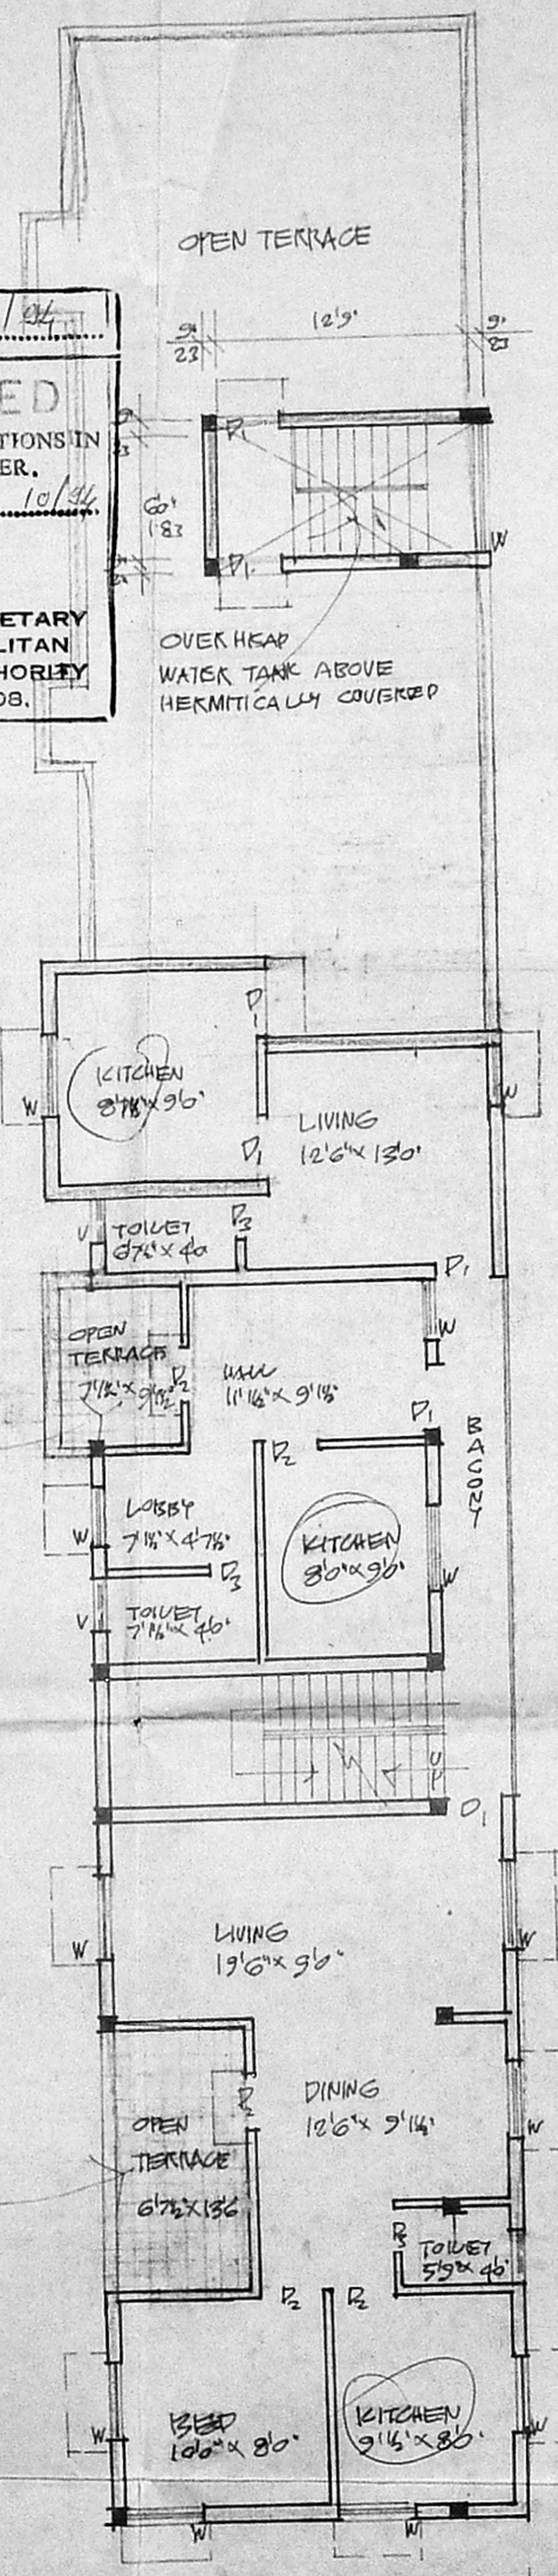 OPEN TERRACE
/94
9"
23
12'9"
9"
23
ED
TIONS IN
ER.
10/94
D1
9"
23
6'0"
1.83
W
D1
ETARY
LITAN
HORITY
08.
OVER HEAD
WATER TANK ABOVE
HERMITICALLY COVERED
D1
KITCHEN
8'7½"X9'0"
W
W
LIVING
12'6"X13'0"
D1
D3
V
TOILET
6'7½"X4'0
D1
OPEN
TERRACE
W
D2
HALL
11'1½"X9'1½"
D1
BACONY
D2
LOBBY
7'1½"X4'7½"
W
KITCHEN
8'0"X9'0"
W
D3
V
TOILET
7'1½"X4'0"
UP
D1
LIVING
19'6"X9'0"
W
W
DINING
12'6"X9'1½"
D2
W
OPEN
TERRACE
6'7½"X13'6
D3
TOILET
5'9"X4'0"
D2
D2
BED
10'0"X8'0"
KITCHEN
9'1½"X8'0"
W
W
W
W